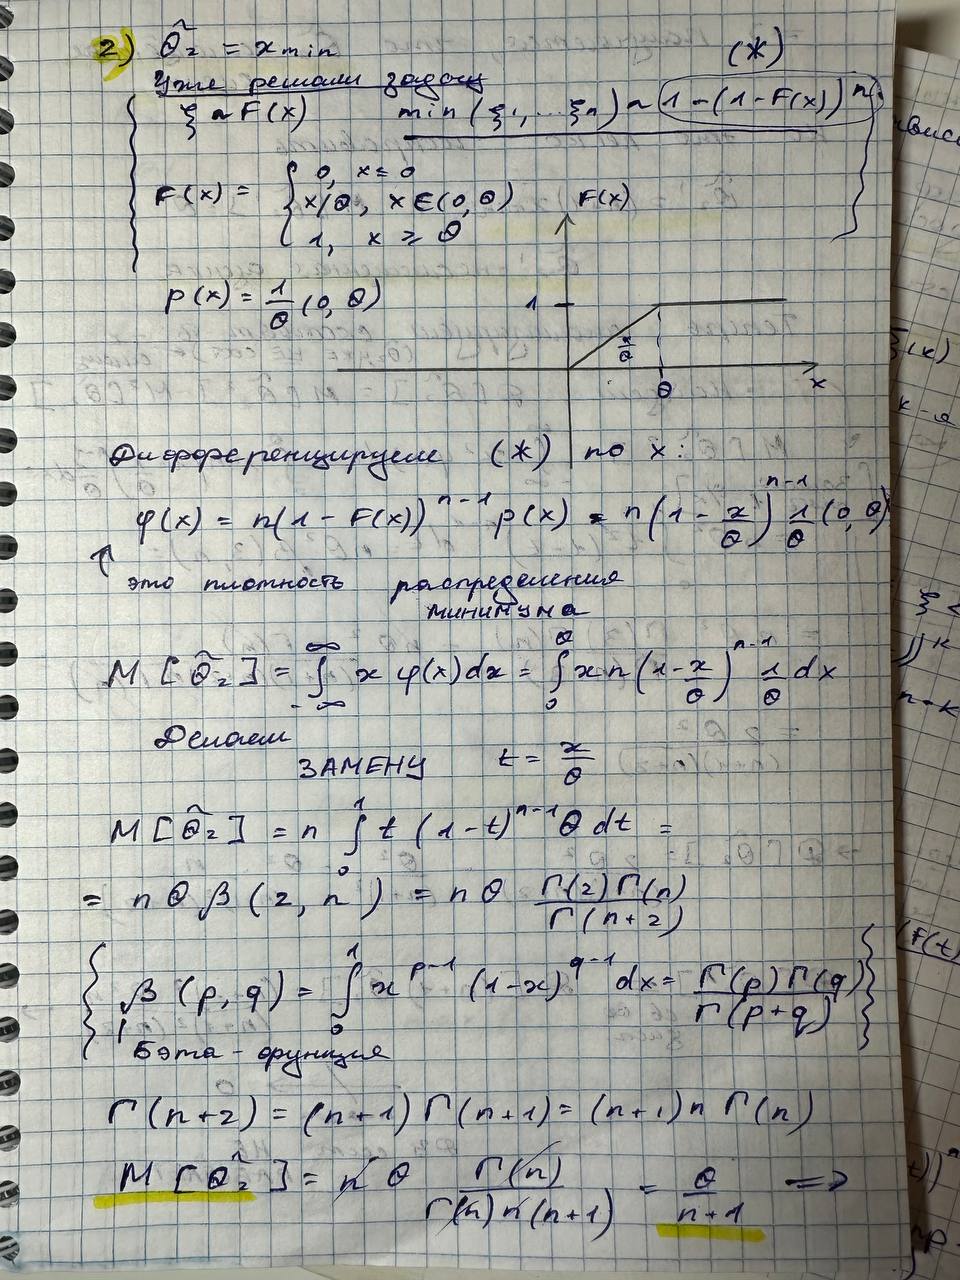 2) θ̃₂ = xmin
(*)
Уже решали задачу
ξ ~ F(x) min(ξ₁,...ξn) ~ 1-(1-F(x))ⁿ.
F(x) = { 0, x ≤ 0
x/θ, x ∈ (0, θ)
1, x ≥ θ
F(x)
p(x) = 1/θ (0, θ)
1
x/θ
θ
x
Дифференцируем (*) по x:
φ(x) = n(1 - F(x))ⁿ⁻¹ p(x) = n(1 - x/θ)ⁿ⁻¹ 1/θ (0, θ)
это плотность распределения
минимума
M[θ̃₂] = ∫_{-∞}^{∞} x φ(x)dx = ∫_0^θ x n(1 - x/θ)ⁿ⁻¹ 1/θ dx
Делаем
ЗАМЕНУ t = x/θ
M[θ̃₂] = n ∫_0^1 t (1-t)ⁿ⁻¹ θ dt =
= n θ β(2, n) = n θ Γ(2)Γ(n)/Γ(n+2)
{ β(p, q) = ∫_0^1 x^{p-1} (1-x)^{q-1} dx = Γ(p)Γ(q)/Γ(p+q) }
Бэта-функция
Γ(n+2) = (n+1)Γ(n+1) = (n+1)n Γ(n)
M[θ̃₂] = n θ Γ(n)/Γ(n)n(n+1) = θ/n+1 =>